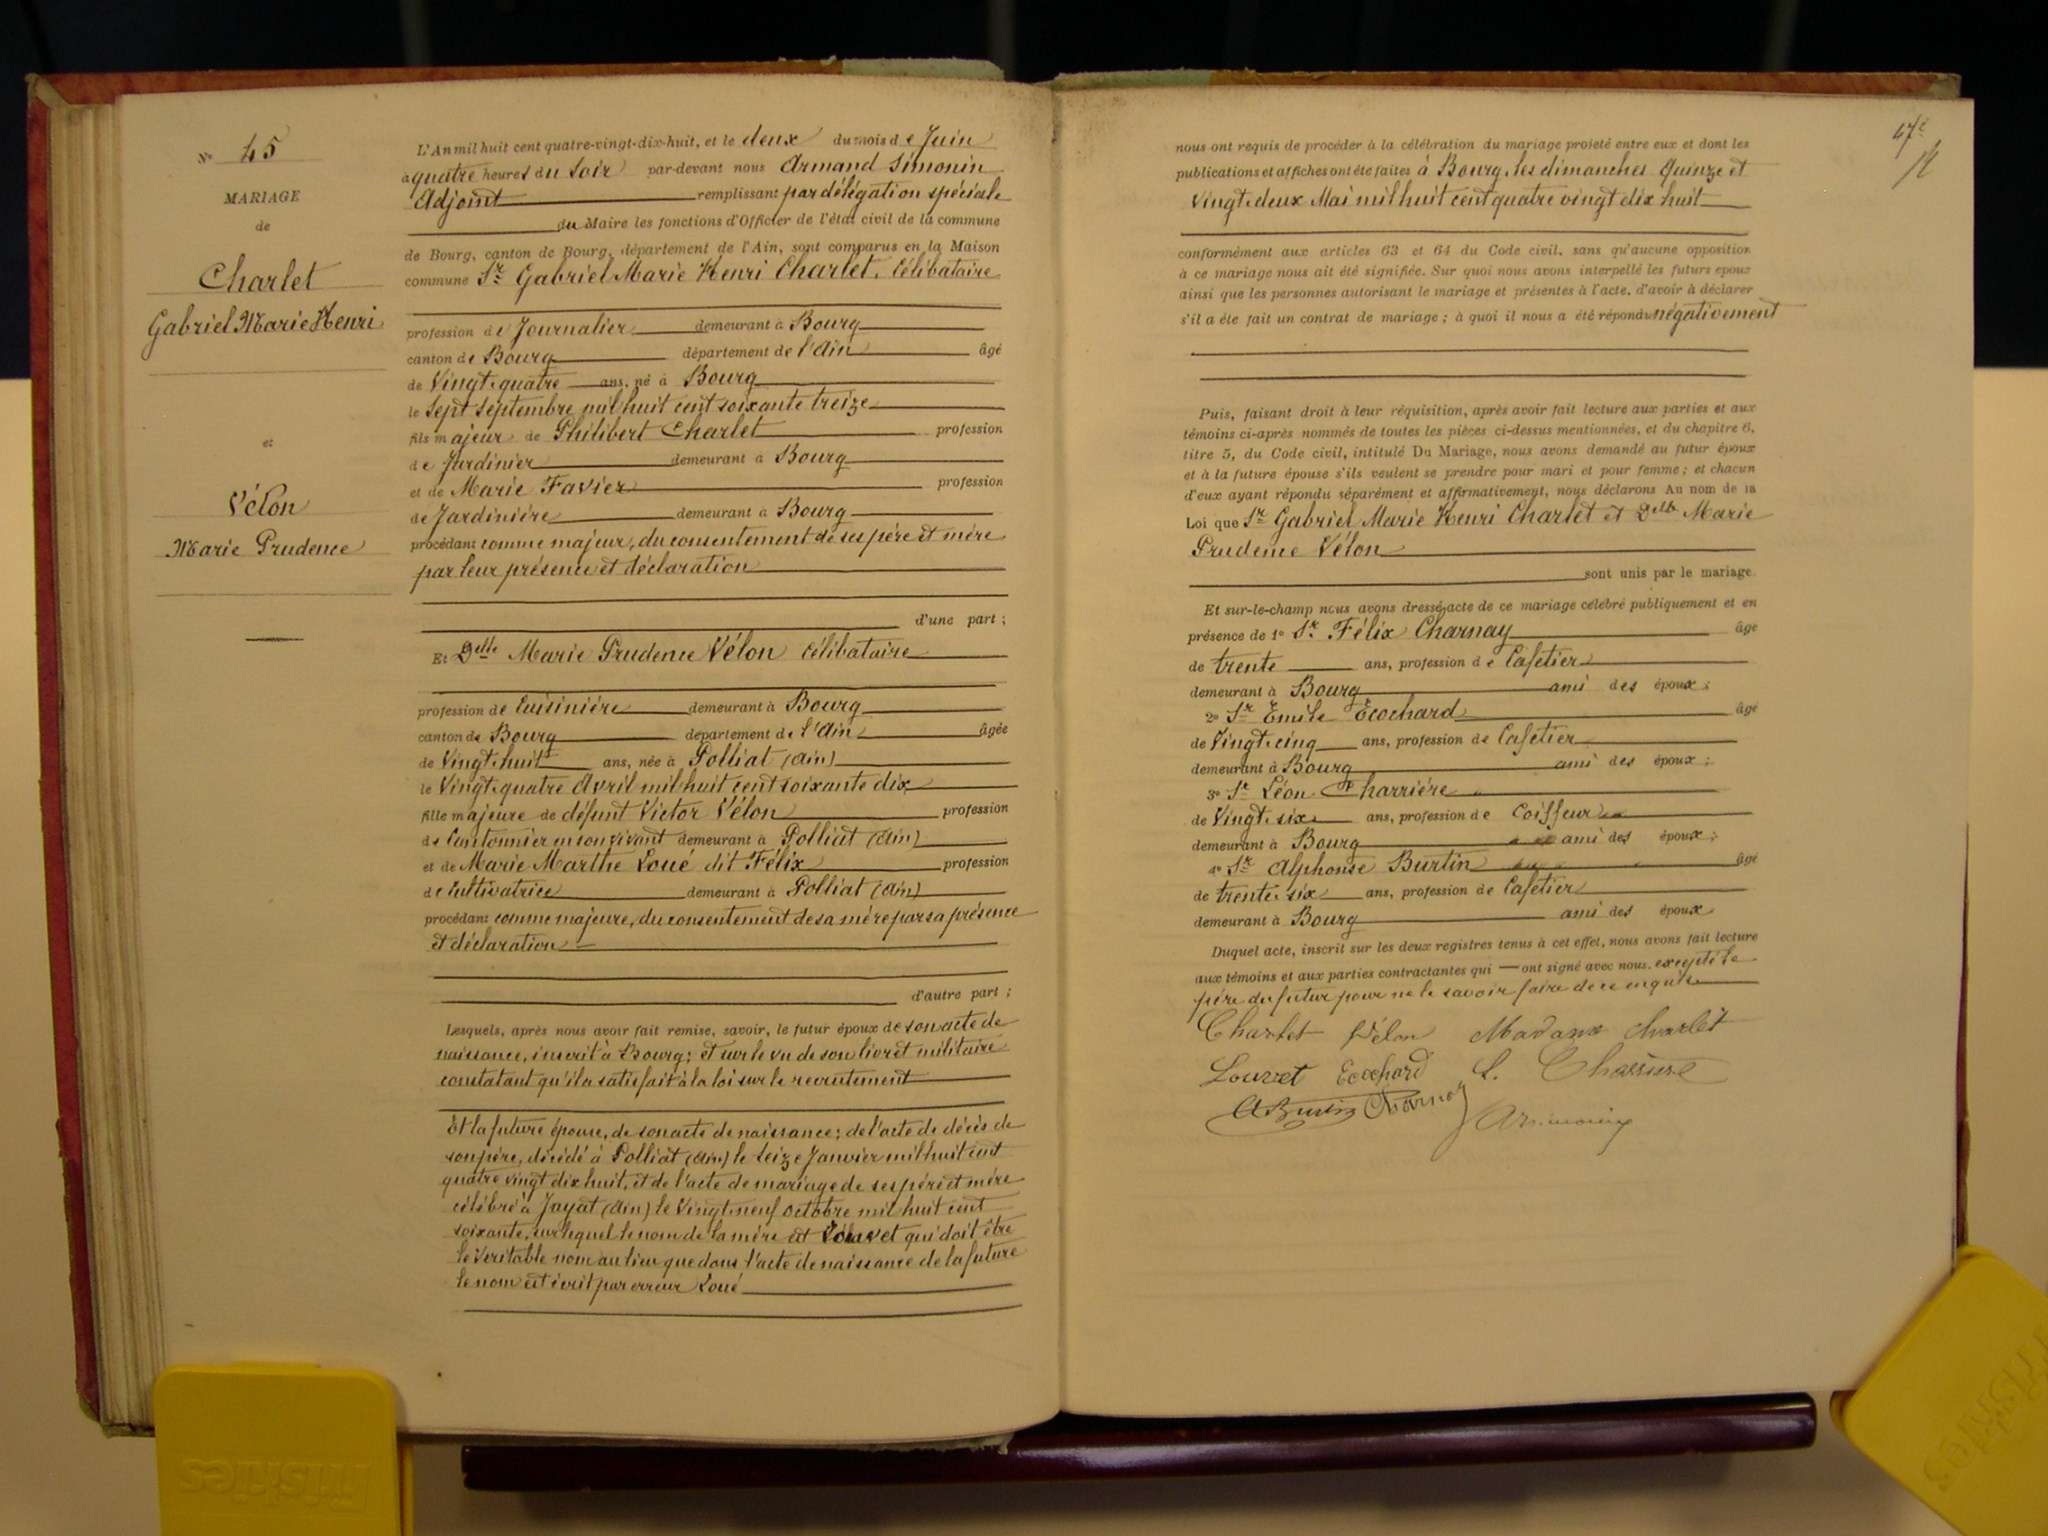 N° 45
MARIAGE
de
Charlet
Gabriel Marie Henri
et
Vélon
Marie Prudence
L'An mil huit cent quatre-vingt-dix-huit, et le deux du mois de Juin
à quatre heures du Soir par-devant nous Armand Simonin
Adjoint remplissant par délégation spéciale
du Maire les fonctions d'Officier de l'état civil de la commune
de Bourg, canton de Bourg, département de l'Ain, sont comparus en la Maison
commune Sr Gabriel Marie Henri Charlet, Célibataire
profession de Journalier demeurant à Bourg
canton de Bourg département de l'Ain âgé
de Vingt-quatre ans, né à Bourg
le Sept Septembre mil huit cent soixante treize
fils majeur de Philibert Charlet profession
de Jardinier demeurant à Bourg
et de Marie Favier profession
de Jardinière demeurant à Bourg
procédant comme majeur, du consentement de ses père et mère
par leur présence et déclaration
d'une part ;
Et Delle Marie Prudence Vélon Célibataire
profession de Cuisinière demeurant à Bourg
canton de Bourg département de l'Ain âgée
de Vingt-huit ans, née à Polliat (Ain)
le Vingt-quatre Avril mil huit cent soixante dix
fille majeure de défunt Victor Vélon profession
de Cantonnier en son vivant demeurant à Polliat (Ain)
et de Marie Marthe Loué dit Félix profession
de Cultivatrice demeurant à Polliat (Ain)
procédant comme majeure, du consentement de sa mère par sa présence
et déclaration
d'autre part ;
Lesquels, après nous avoir fait remise, savoir, le futur époux de son acte de
naissance, inscrit à Bourg ; et sur le vu de son livret militaire
constatant qu'il a satisfait à la loi sur le recrutement
Et la future épouse, de son acte de naissance ; de l'acte de décès de
son père, décédé à Polliat (Ain) le Seize Janvier mil huit cent
quatre vingt dix huit, et de l'acte de mariage de ses père et mère
célébré à Jayat (Ain) le Vingt-neuf octobre mil huit cent
soixante, sur lequel le nom de la mère est qui doit être
le Véritable nom au lieu que dans l'acte de naissance de la future
le nom est écrit par erreur Loué
47e
nous ont requis de procéder à la célébration du mariage projeté entre eux et dont les
publications et affiches ont été faites à Bourg, les dimanches Quinze et
Vingt-deux Mai mil huit cent quatre vingt dix huit
conformément aux articles 63 et 64 du Code civil, sans qu'aucune opposition
à ce mariage nous ait été signifiée. Sur quoi nous avons interpellé les futurs époux
ainsi que les personnes autorisant le mariage et présentes à l'acte, d'avoir à déclarer
s'il a été fait un contrat de mariage ; à quoi il nous a été répondu négativement
Puis, faisant droit à leur réquisition, après avoir fait lecture aux parties et aux
témoins ci-après nommés de toutes les pièces ci-dessus mentionnées, et du chapitre 6,
titre 5, du Code civil, intitulé Du Mariage, nous avons demandé au futur époux
et à la future épouse s'ils veulent se prendre pour mari et pour femme ; et chacun
d'eux ayant répondu séparément et affirmativement, nous déclarons Au nom de la
Loi que Sr Gabriel Marie Henri Charlet et Delle Marie
Prudence Vélon
sont unis par le mariage.
Et sur-le-champ nous avons dressé acte de ce mariage célébré publiquement et en
présence de 1° Sr Félix Charnay âgé
de trente ans, profession de Cafetier
demeurant à Bourg ami des époux ;
2° Sr Emile Ecochard âgé
de Vingt-cinq ans, profession de Cafetier
demeurant à Bourg ami des époux ;
3° Sr Léon Charrière
de Vingt-six ans, profession de Coiffeur
demeurant à Bourg ami des époux ;
4° Sr Alphonse Burtin âgé
de trente-six ans, profession de Cafetier
demeurant à Bourg ami des époux
Duquel acte, inscrit sur les deux registres tenus à cet effet, nous avons fait lecture
aux témoins et aux parties contractantes qui ont signé avec nous, excepté le
père du futur pour ne le savoir faire de ce enquis
Charlet Vélon Madame charlet
Louvet Ecochard L. Charrière
A Burtin Charnay
A Simonin